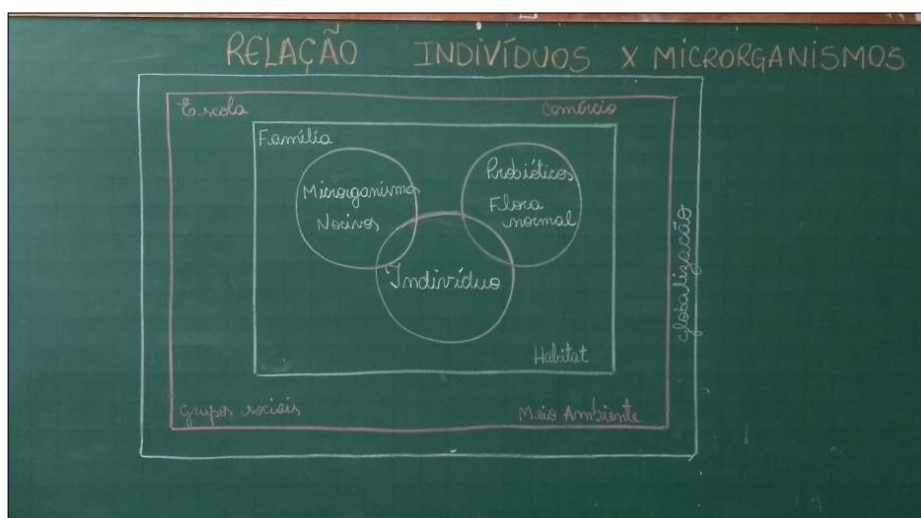 RELAÇÃO INDIVÍDUOS X MICRORGANISMOS
Escola
Comércio
Família
Microrganismos
Nocivos
Probióticos
Flora
normal
Indivíduo
Habitat
globalização
Grupos sociais
Meio Ambiente